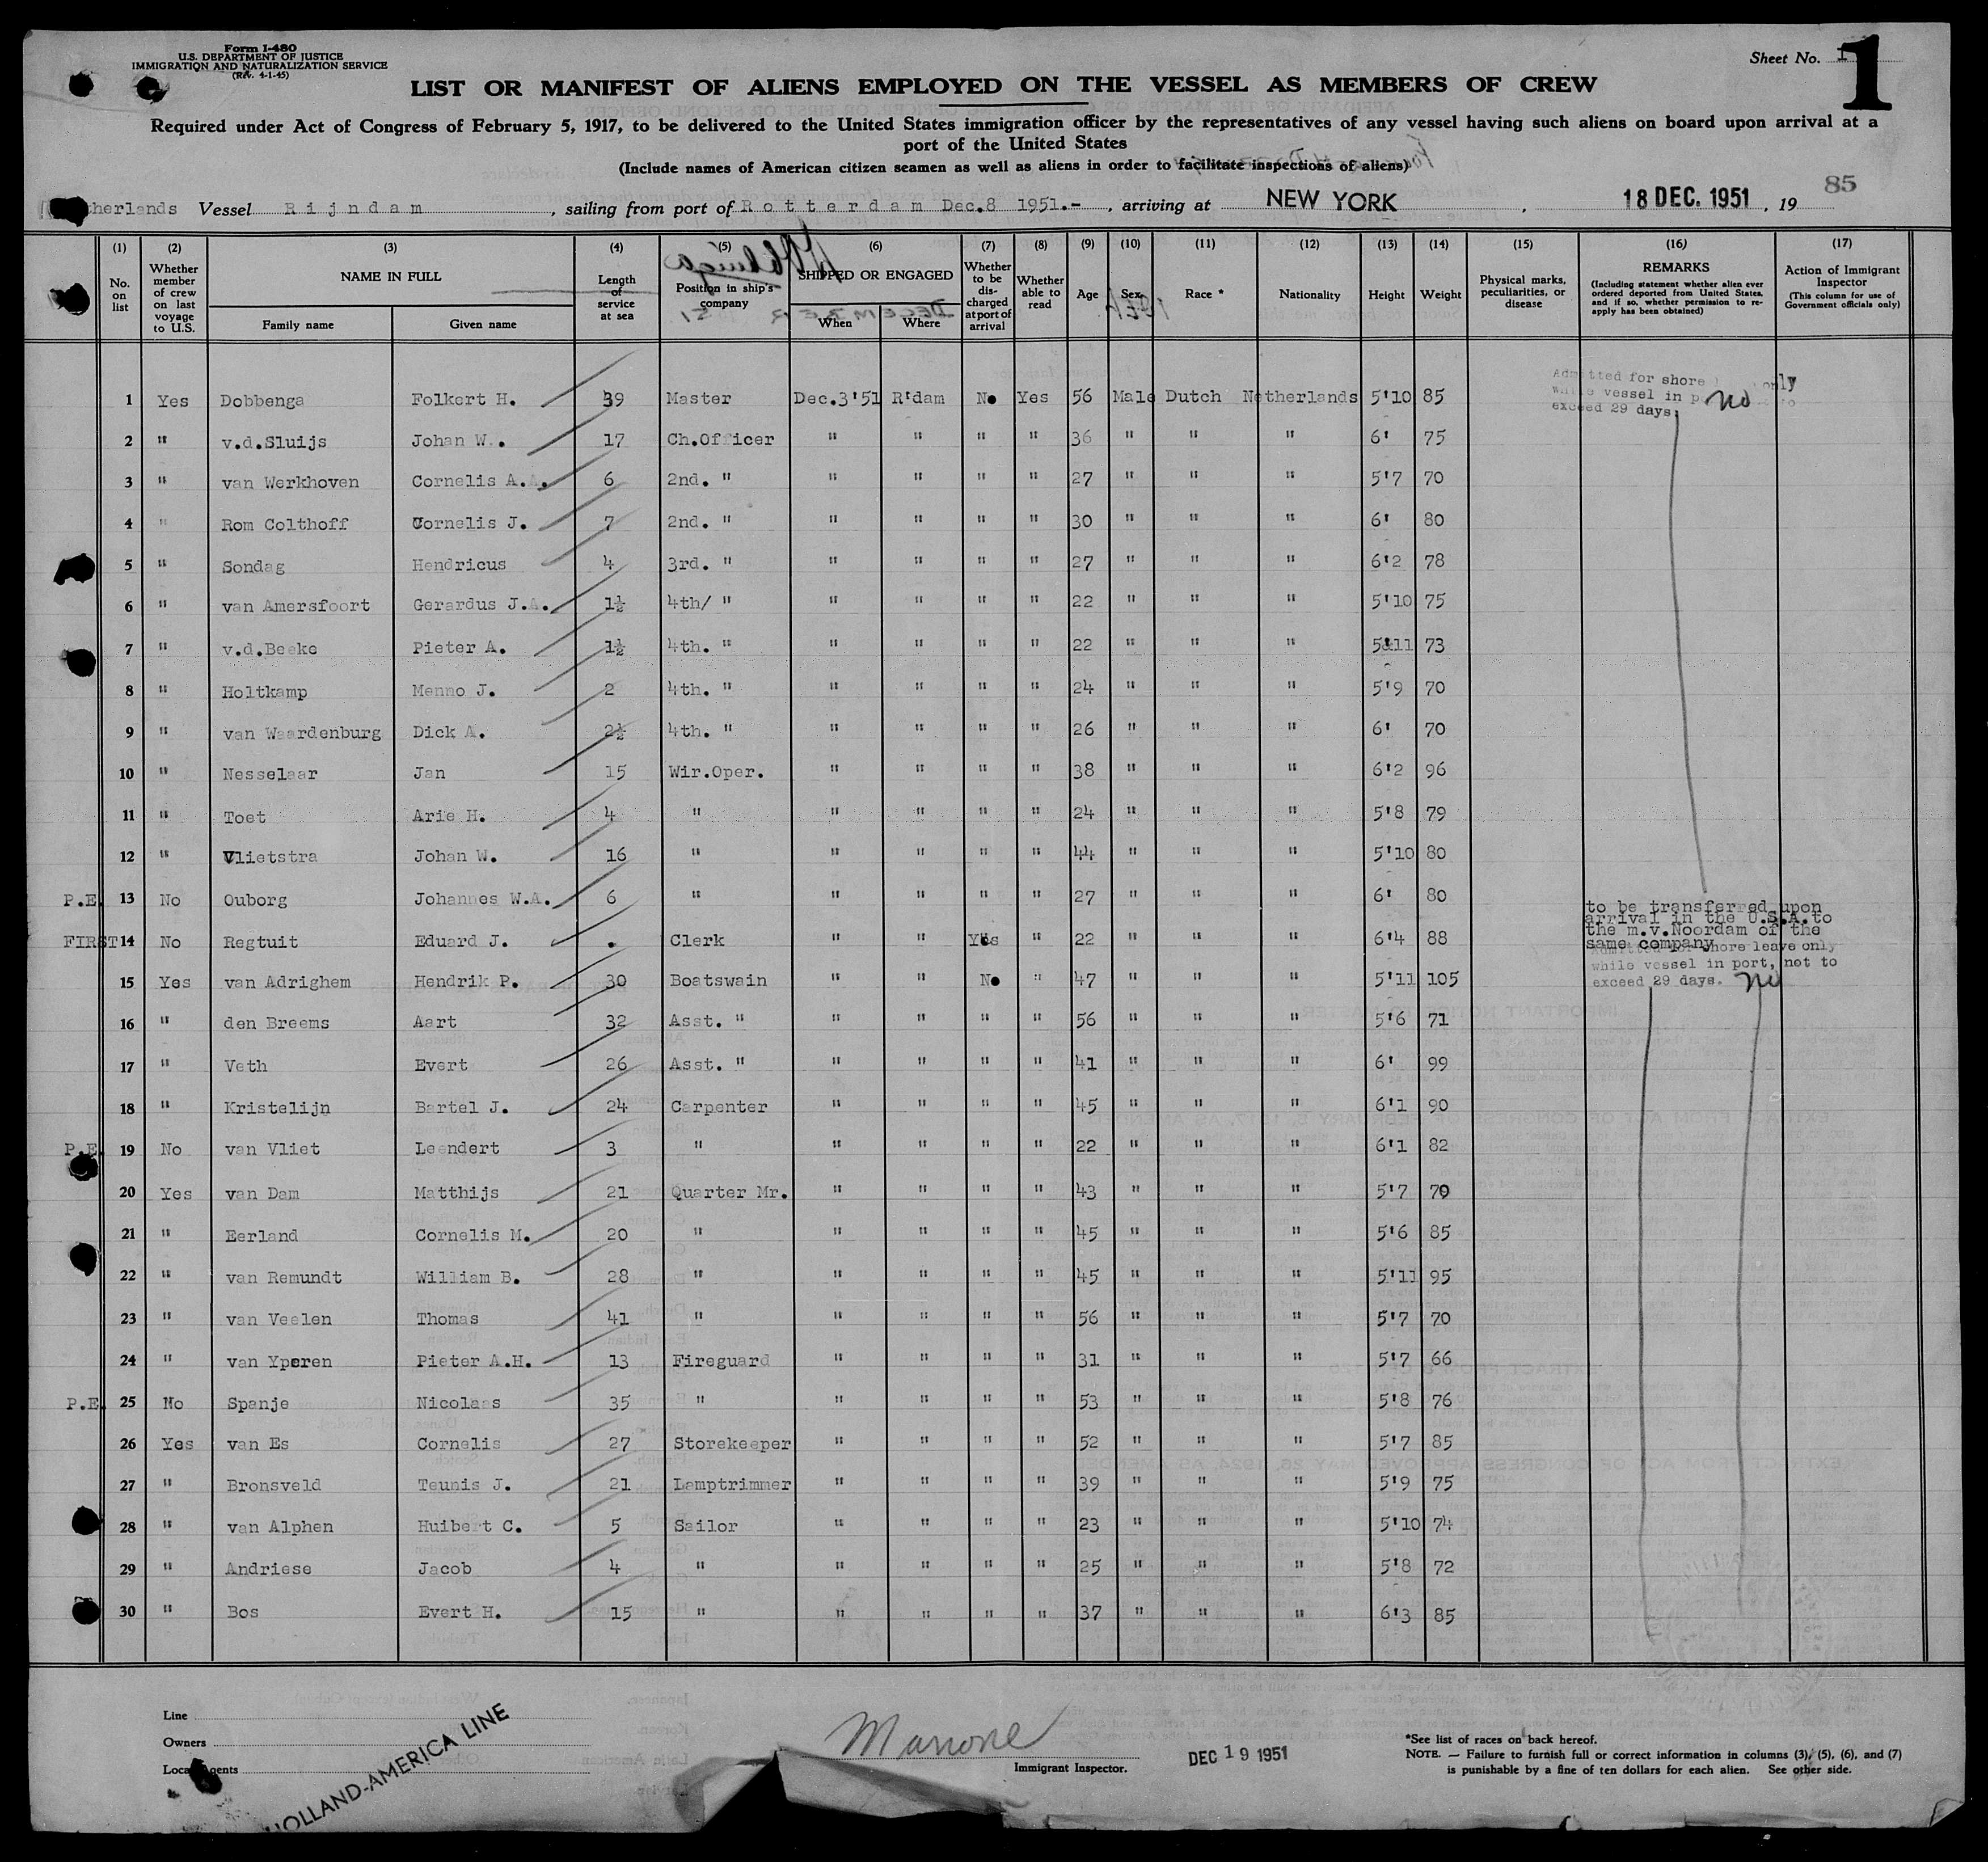 Form I-480
U.S. DEPARTMENT OF JUSTICE
IMMIGRATION AND NATURALIZATION SERVICE
(Rev. 4-1-45)
Sheet No. 1
1
LIST OR MANIFEST OF ALIENS EMPLOYED ON THE VESSEL AS MEMBERS OF CREW
Required under Act of Congress of February 5, 1917, to be delivered to the United States immigration officer by the representatives of any vessel having such aliens on board upon arrival at a
port of the United States
(Include names of American citizen seamen as well as aliens in order to facilitate inspections of aliens)
85
therlands Vessel Rijndam, sailing from port of Rotterdam Dec.8 1951.-, arriving at NEW YORK, 18 DEC. 1951, 19
(1) (2) (3) (4) (5) (6) (7) (8) (9) (10) (11) (12) (13) (14) (15) (16) (17)
No. on list
Whether member of crew on last voyage to U.S.
NAME IN FULL
Family name Given name
Length of service at sea
Position in ship's company
SHIPPED OR ENGAGED
When Where
Whether to be discharged at port of arrival
Whether able to read
Age Sex Race * Nationality Height Weight
Physical marks, peculiarities, or disease
REMARKS
(Including statement whether alien ever ordered deported from United States, and if so, whether permission to reapply has been obtained)
Action of Immigrant Inspector
(This column for use of Government officials only)
DECEMBER
Admitted for shore only
while vessel in p to
exceed 29 days. no
1 Yes Dobbenga Folkert H. 39 Master Dec.3'51 R'dam No Yes 56 Male Dutch Netherlands 5'10 85
2 " v.d.Sluijs Johan W. 17 Ch.Officer " " " " 36 " " " 6' 75
3 " van Werkhoven Cornelis A.A. 6 2nd. " " " " " 27 " " " 5'7 70
4 " Rom Colthoff Cornelis J. 7 2nd. " " " " " 30 " " " 6' 80
5 " Sondag Hendricus 4 3rd. " " " " " 27 " " " 6'2 78
6 " van Amersfoort Gerardus J.A. 1½ 4th/ " " " " " 22 " " " 5'10 75
7 " v.d.Beeke Pieter A. 1½ 4th. " " " " " 22 " " " 5'11 73
8 " Holtkamp Menno J. 2 4th. " " " " " 24 " " " 5'9 70
9 " van Waardenburg Dick A. 2½ 4th. " " " " " 26 " " " 6' 70
10 " Nesselaar Jan 15 Wir.Oper. " " " " 38 " " " 6'2 96
11 " Toet Arie H. 4 " " " " " 24 " " " 5'8 79
12 " Vlietstra Johan W. 16 " " " " " 44 " " " 5'10 80
P.E. 13 No Ouborg Johannes W.A. 6 " " " " " 27 " " " 6' 80
to be transferred upon
arrival in the U.S.A.to
the m.v.Noordam of the
same company
FIRST 14 No Regtuit Eduard J. . Clerk " " Yes " 22 " " " 6'4 88
Admitted for shore leave only
while vessel in port, not to
exceed 29 days. no
15 Yes van Adrighem Hendrik P. 30 Boatswain " " No " 47 " " " 5'11 105
16 " den Breems Aart 32 Asst. " " " " " 56 " " " 5'6 71
17 " Veth Evert 26 Asst. " " " " " 41 " " " 6' 99
18 " Kristelijn Bartel J. 24 Carpenter " " " " 45 " " " 6'1 90
P.E. 19 No van Vliet Leendert 3 " " " " " 22 " " " 6'1 82
20 Yes van Dam Matthijs 21 Quarter Mr. " " " " 43 " " " 5'7 79
21 " Eerland Cornelis M. 20 " " " " " 45 " " " 5'6 85
22 " van Remundt William B. 28 " " " " " 45 " " " 5'11 95
23 " van Veelen Thomas 41 " " " " " 56 " " " 5'7 70
24 " van Yperen Pieter A.H. 13 Fireguard " " " " 31 " " " 5'7 66
P.E. 25 No Spanje Nicolaas 35 " " " " " 53 " " " 5'8 76
26 Yes van Es Cornelis 27 Storekeeper " " " " 52 " " " 5'7 85
27 " Bronsveld Teunis J. 21 Lamptrimmer " " " " 39 " " " 5'9 75
28 " van Alphen Huibert C. 5 Sailor " " " " 23 " " " 5'10 74
29 " Andriese Jacob 4 " " " " " 25 " " " 5'8 72
30 " Bos Evert H. 15 " " " " " 37 " " " 6'3 85
Line
Owners
Local Agents
HOLLAND-AMERICA LINE
Immigrant Inspector.
DEC 19 1951
*See list of races on back hereof.
NOTE. — Failure to furnish full or correct information in columns (3), (5), (6), and (7)
is punishable by a fine of ten dollars for each alien. See other side.